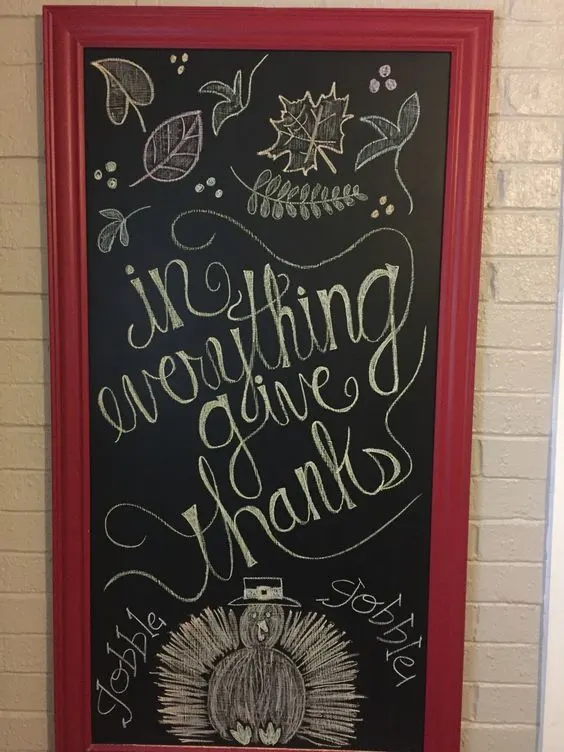 in
everything
give
thanks
Gobble
Gobble